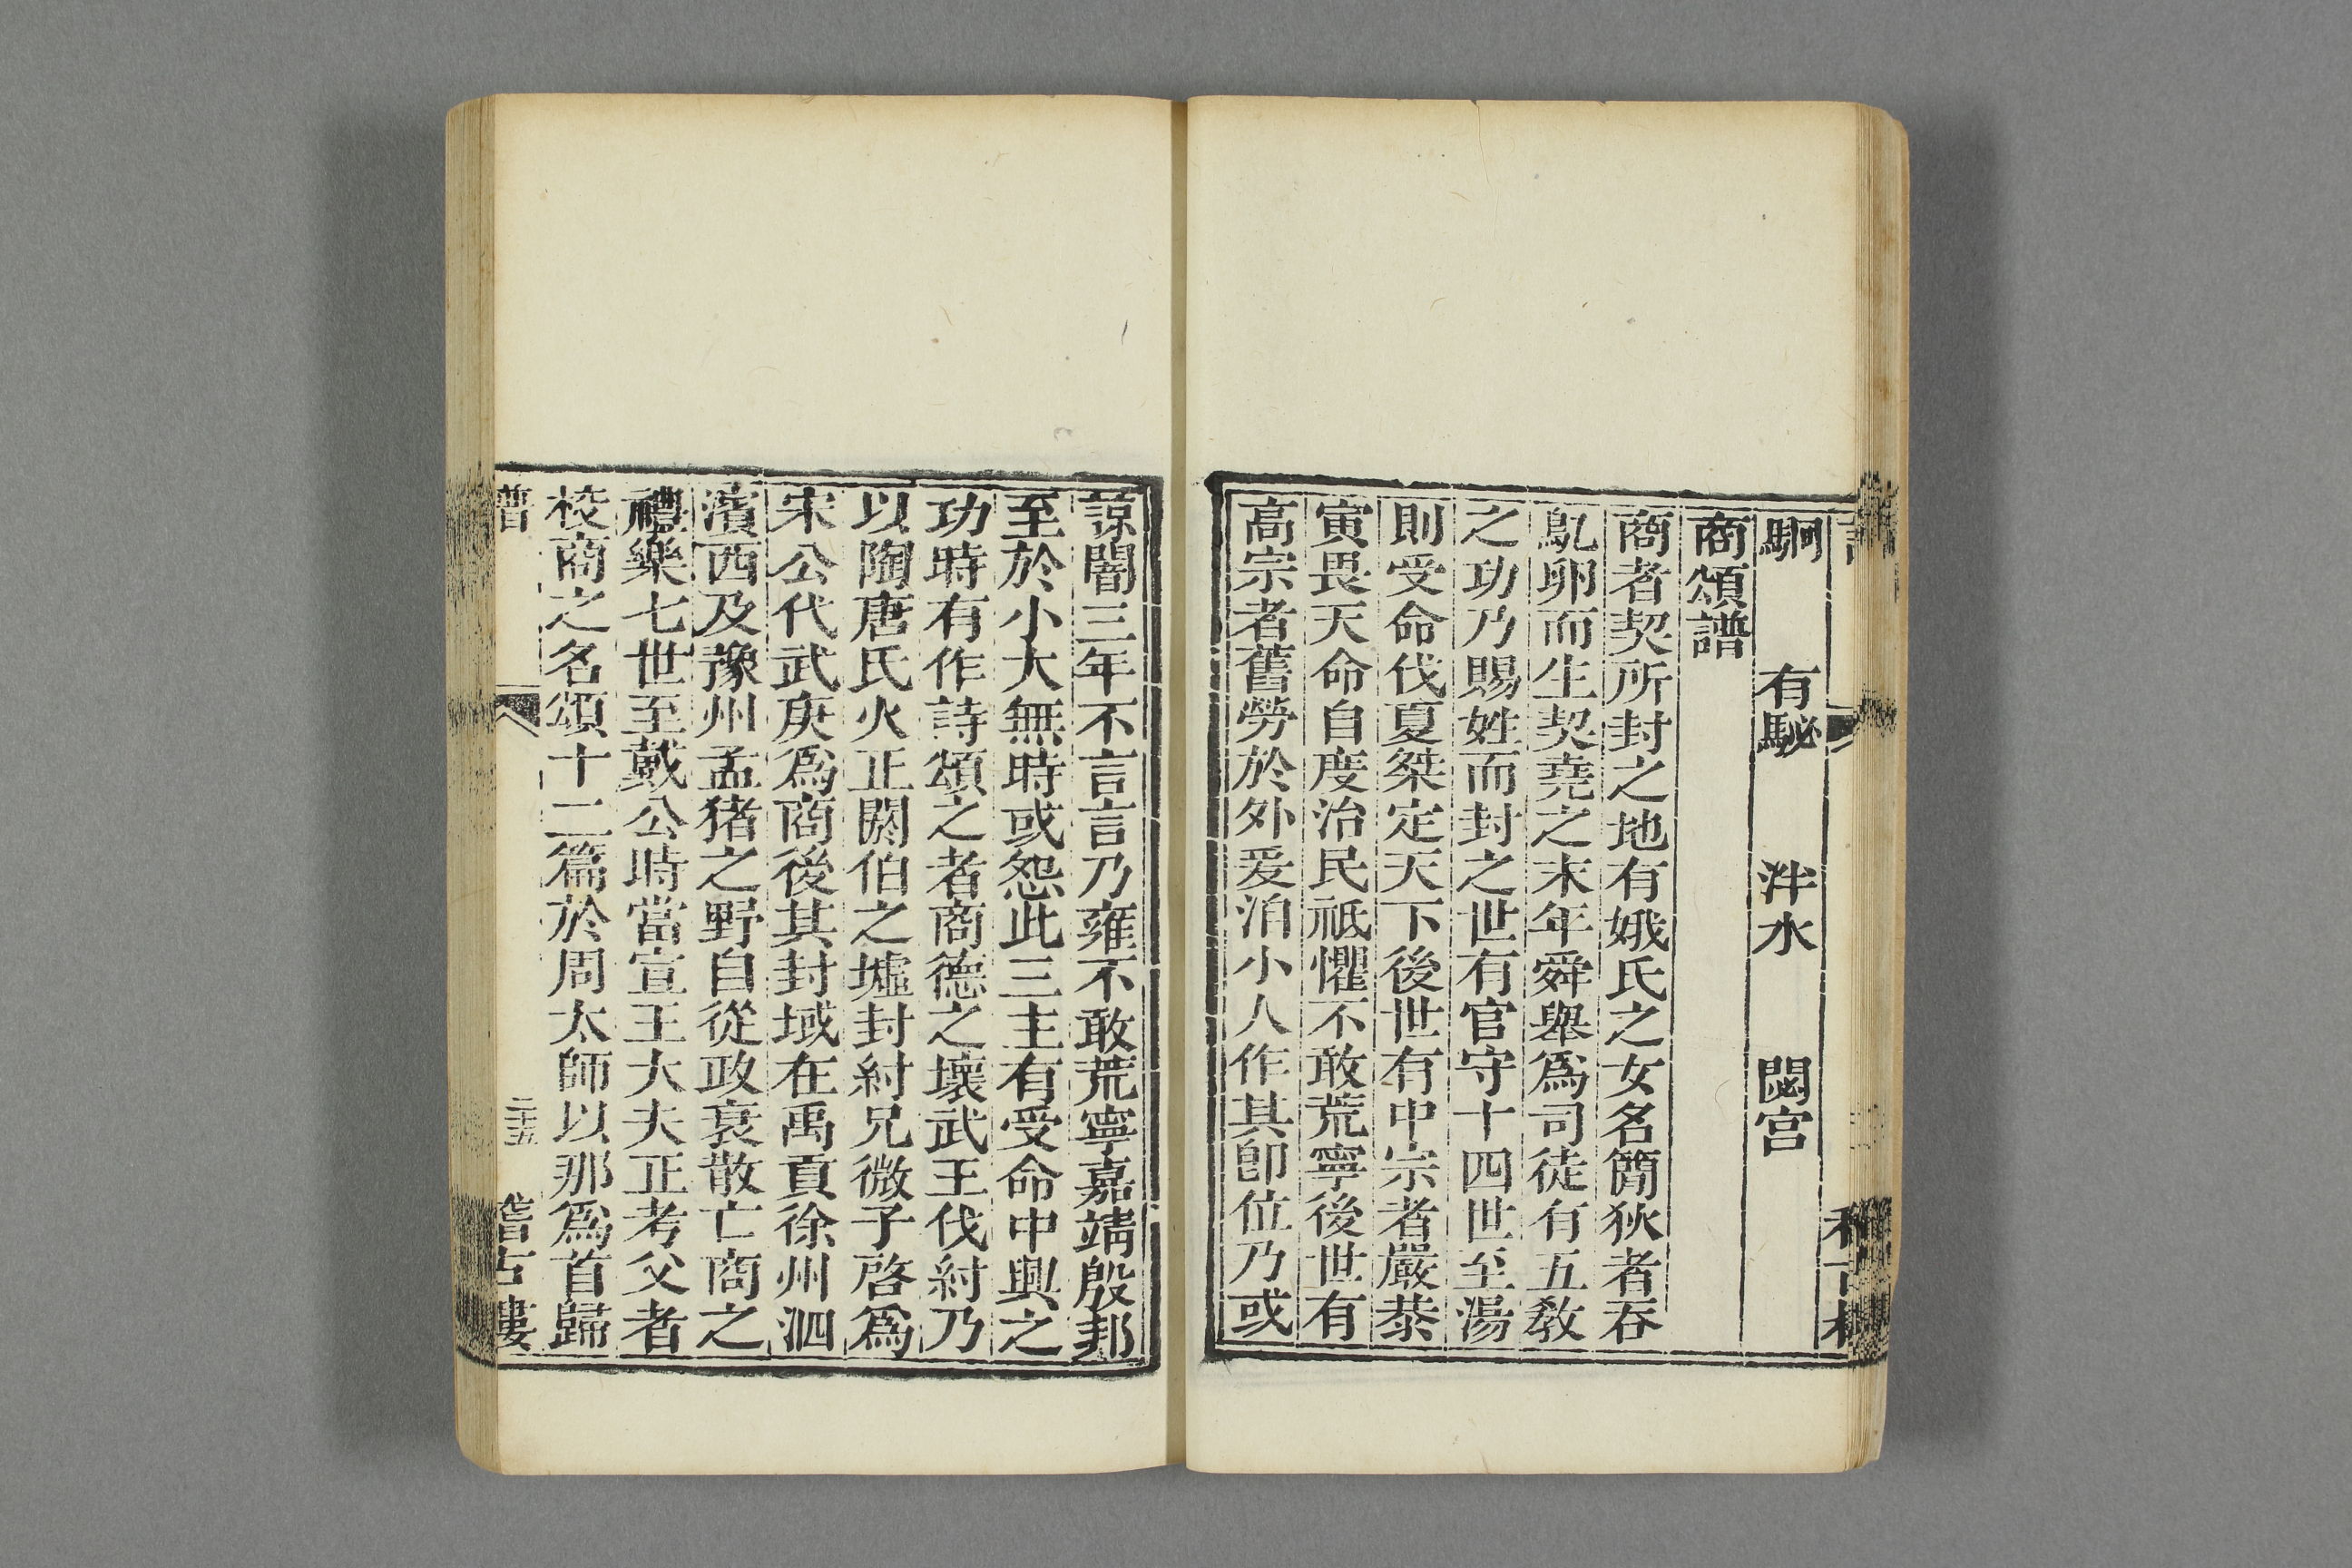 駉　有駜　泮水　閟宮
商頌譜
商者契所封之地有娀氏之女名簡狄者吞
鳦卵而生契堯之末年舜舉爲司徒有五敎
之功乃賜姓而封之世有官守十四世至湯
則受命伐夏桀定天下後世有中宗者嚴恭
寅畏天命自度治民祗懼不敢荒寧後世有
高宗者舊勞於外爰洎小人作其卽位乃或
諒闇三年不言言乃雍不敢荒寧嘉靖殷邦
至於小大無時或怨此三主有受命中興之
功時有作詩頌之者商德之壞武王伐紂乃
以陶唐氏火正閼伯之墟封紂兄微子啓爲
宋公代武庚爲商後其封域在禹貢徐州泗
濱西及豫州孟猪之野自從政衰散亡商之
禮樂七世至戴公時當宣王大夫正考父者
校商之名頌十二篇於周太師以那爲首歸
譜　二十五　稽古樓